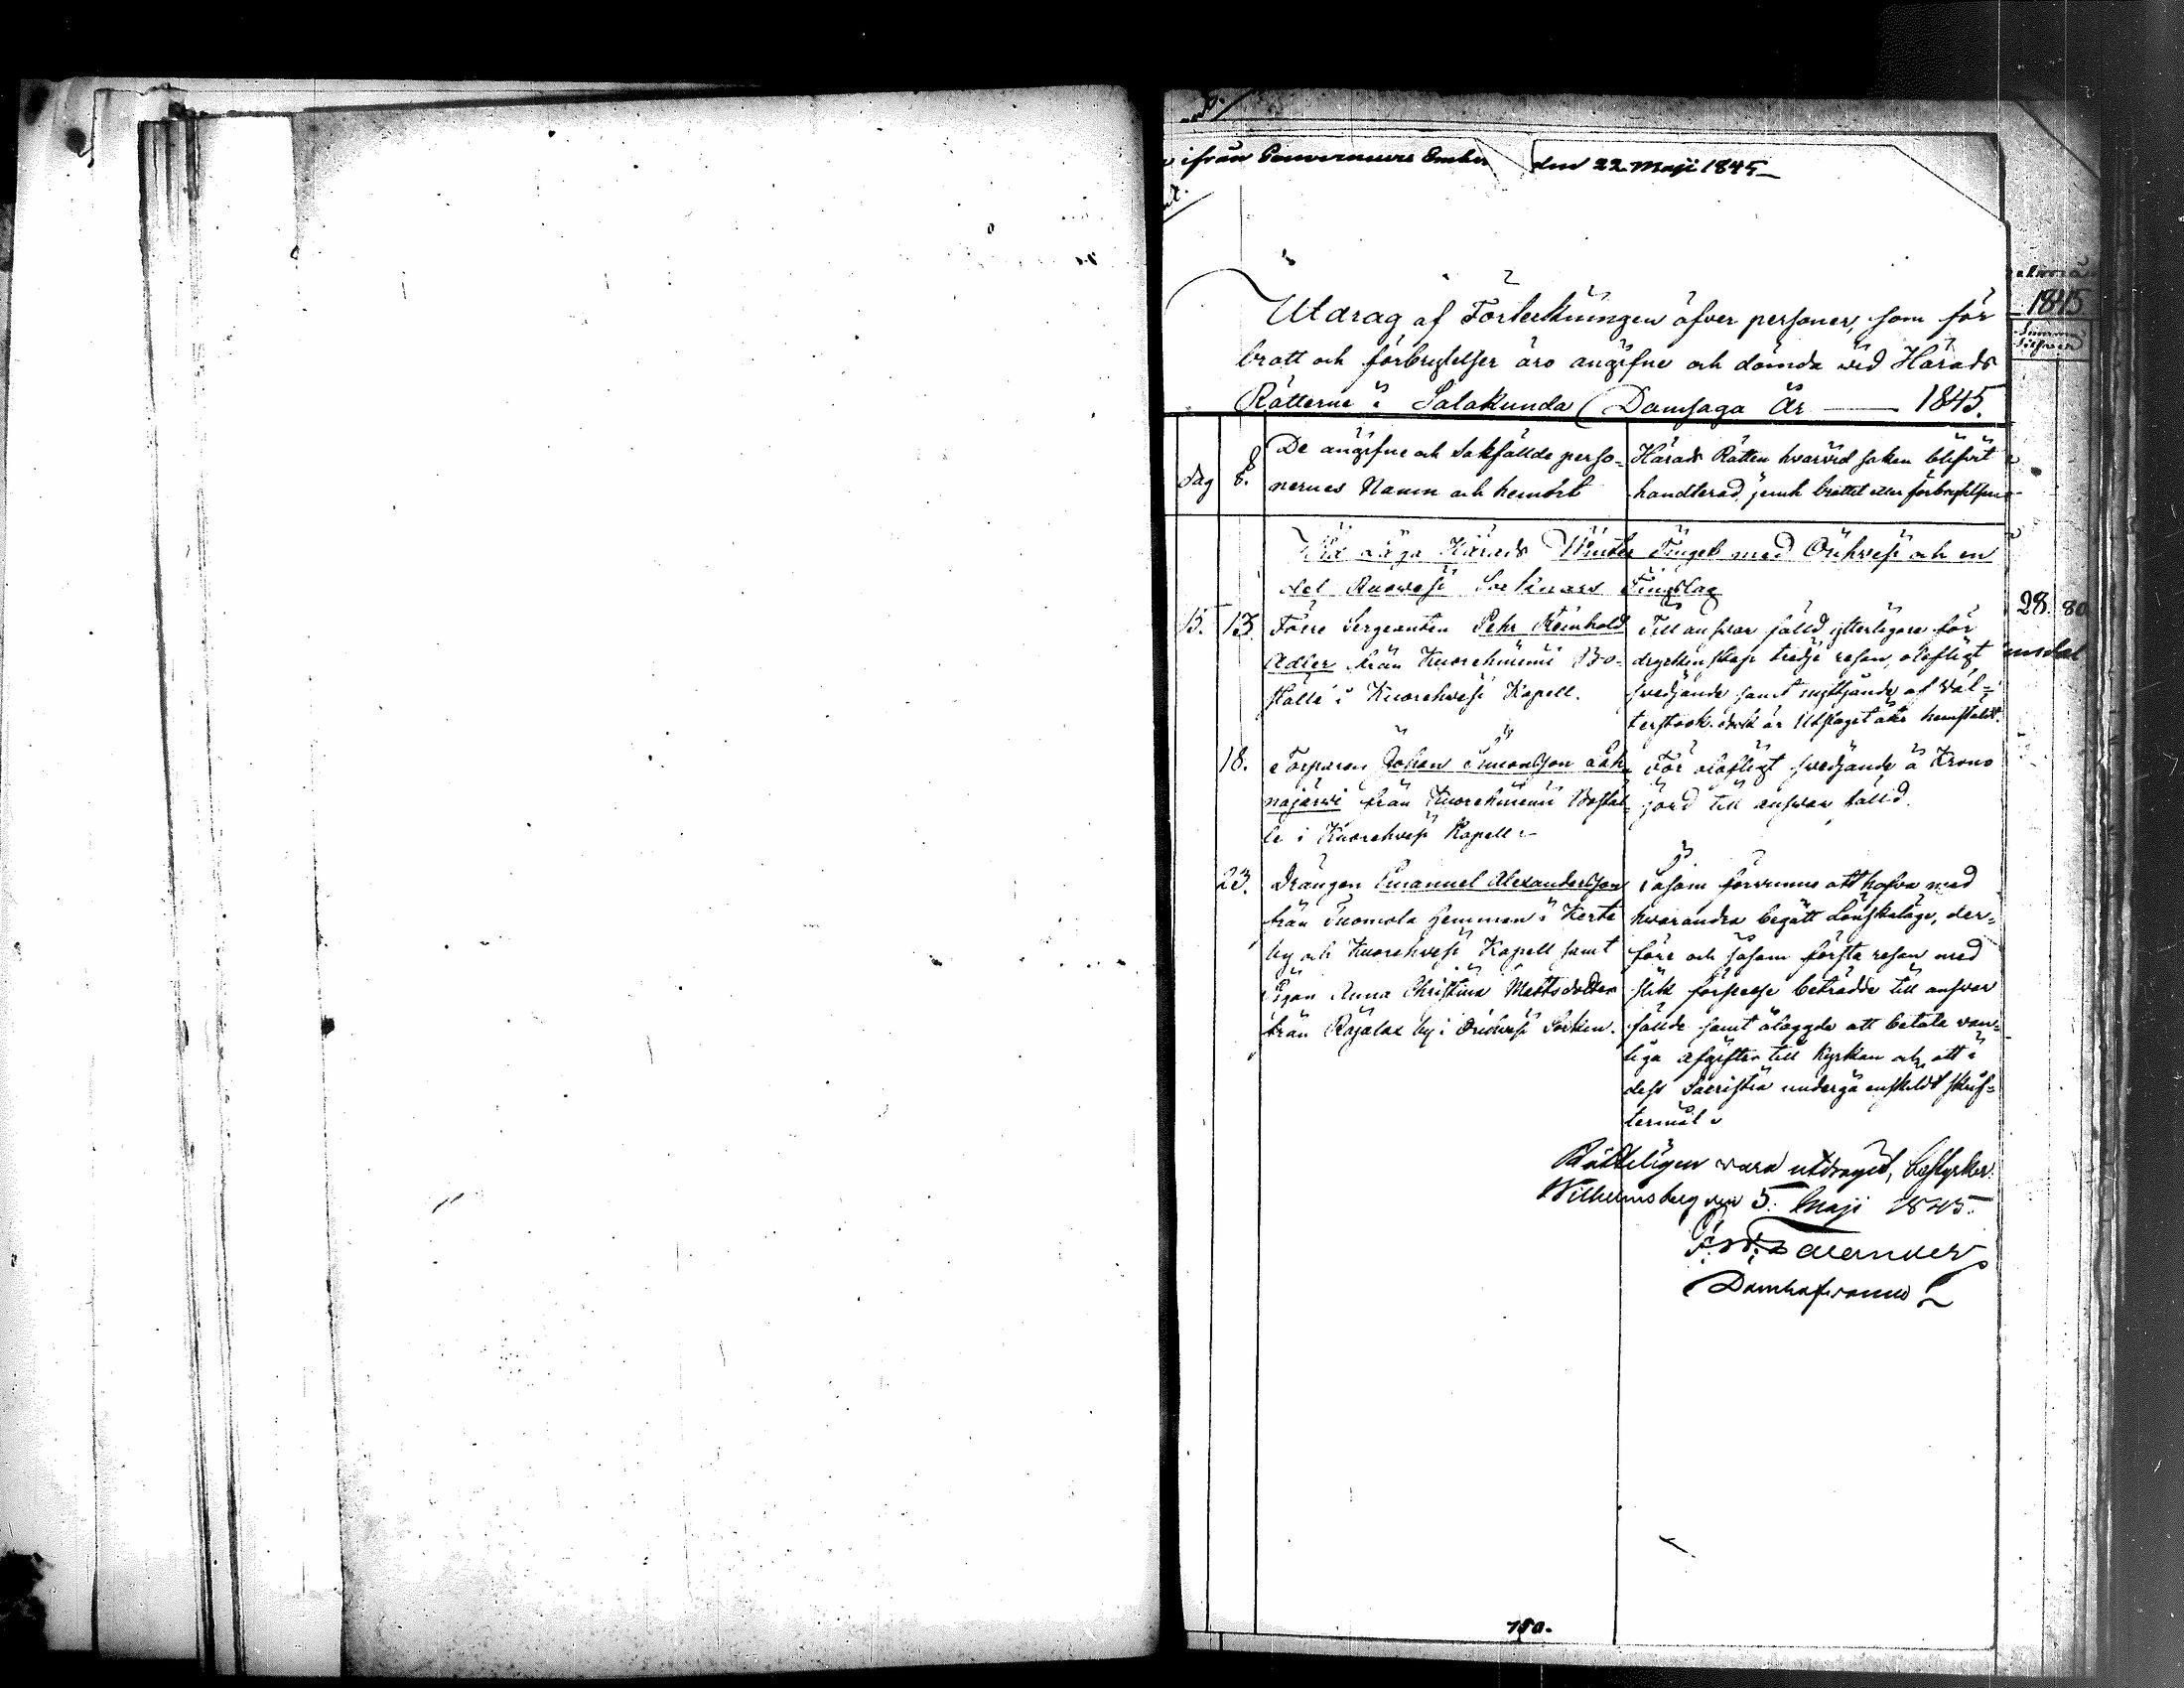 ifrån Gouverneurs Embe
den 22 Maji 1845
Utdrag af Förteckningen öfver personer, som för
brott och förbrytelser äro angifne och dömda vid Härads
Rätterne i Satakunda Domsaga År — 1845.
dag
§.
De angifne och sakfällde perso-
nernes Namn och hemort
Härads Rätten hvarvid saken blifvit
handterad, jemte brottet eller förbrytelsen
Härads Winter Tinget med Orihvesi och en
del Ruovesi Socknars Tingslag
15.
13.
Förre Sergeanten Pehr Reinhold
Adler från Kuorehniemi Bo-
ställe i Kuorehvesi Kapell.
Till ansvar fälld ytterligare för
dryckenskap tredje resan, olofligt
svedjande samt nyttjande af
18.
Torparen Johan Simonsson
najärvi från Kuorehniemi Bostäl-
le i Kuorehvesi Kapell
För olofligt svedjande å Krono
jord till ansvar fälld.
23.
Drängen Emanuel Alexandersson
från Tuomola hemman i Kerte
by och Kuorehvesi Kapell samt
Pigan Anna Christina Mattsdotter
från Rajalax by i Orihvesi Socken.
Såsom förvunne att hafva med
hvarandra begått Lönskaläge, der-
före och såsom första resan med
slik förseelse beträdde till ansvar
fällde samt ålagde att betala van-
liga afgifter till Kyrkan och att i
dess Sacristia undergå enskildt skrif-
termål
Rätteligen vara utdraget, bestyrker.
Wilhelmsberg den 5. Maji 1845.
Domhafvande
1845
28. 80
180.